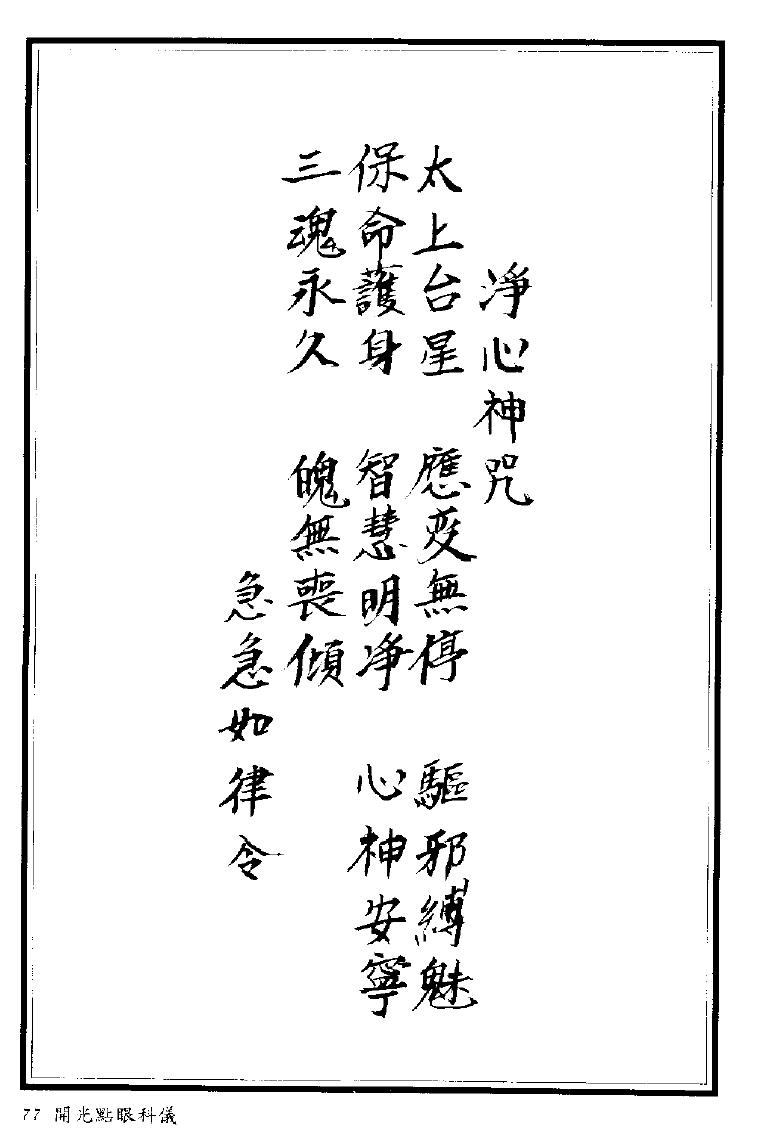 淨心神咒
太上台星 應変無停 驅邪縛魅
保命護身 智慧明净 心神安寧
三魂永久 魄無喪傾
急急如律令
77 開光點眼科儀